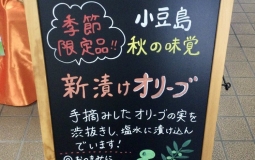 季節
限定品!!
小豆島
秋の味覚
新漬けオリーブ
手摘みしたオリーブの実を
渋抜きし、塩水に漬け込ん
でいます!